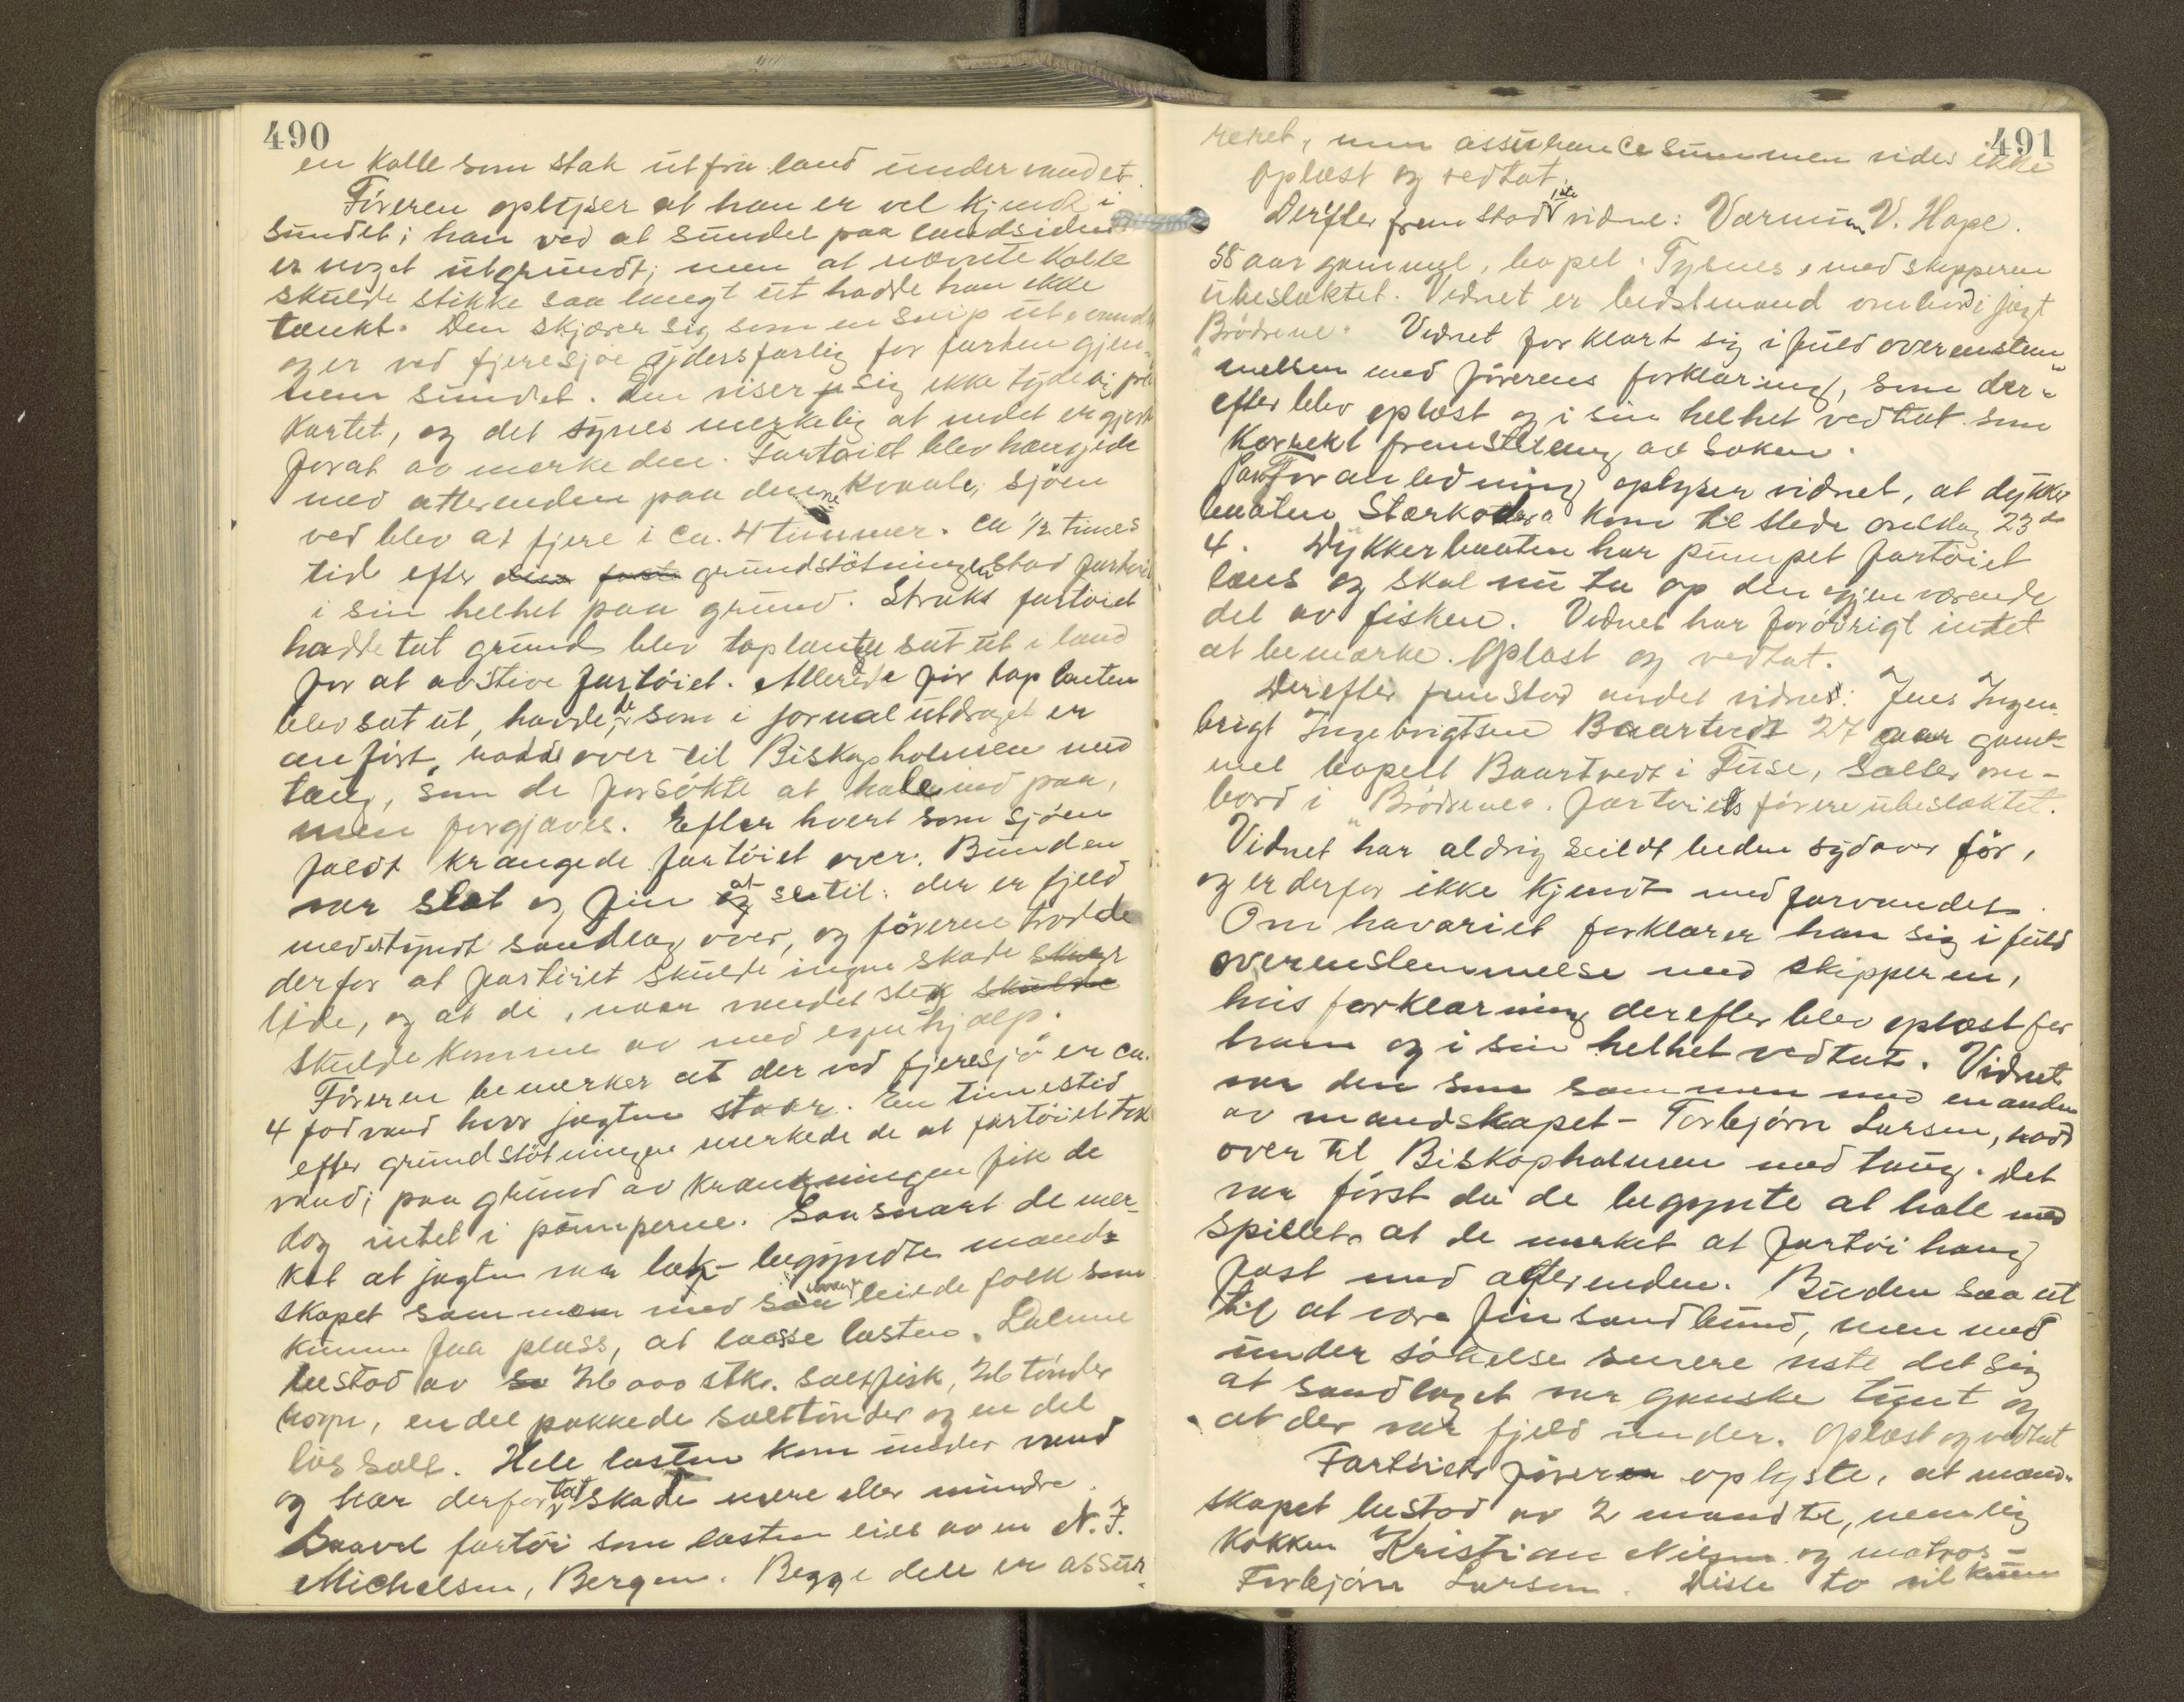 490
en Kolle som stak ut fra land under vandet.
Föreren oplyser at han er vel kjendt i
Sundet; han ved at sundet paa landsiden
er noget utgrundt; men at nævnte Kolle
skulde stikke saa langt ut hadde han ikke
tænkt. Den skjærer sig som en snip ut i vandet
og er ved fjæresjø ydersfarlig for farten gjen-
nem sundet. Den viser sig ikke tydelig paa
Kartet, og det synes merkelig at intet er gjort
for at av merke den. Fartöiet blev hængende
med atterenden paa denne Kraale; sjöen
ved blev at fjere i ca. 4 timmer. Ca ½ times
tid efter grundstötningen stod fartöiet
i sin helhet paa grund. Straks fartöiet
hadde tat grund blev toplanter sat ut i land
for at avstive fartöiet. Allerede för toplanten
blev sat ut, havde de, som i jornalutdraget er
anfört, rodd over til Biskopholmen med
taug, som de forsökte at hale ind paa,
men forgjæves. Efter hvert som sjöen
faldt krængede fartöiet over. Bunden
var slat og fin at se til: der er fjeld
med et tyndt sandlag over, og föreren trodde
derfor at fartöiet skulde ingen skade
lide, og at de, naar vandet steg
skulde komme av med egen hjælp.
Föreren bemerker at der ved fjeresjö er ca.
4 fod vand hvor jagten staar. En timestid
efter grundstötningen merkede de at fartöiet tok
vand; paa grund av krængningen fik de
dog intet i pomperne. Saasnart de mer-
ket at jagten var læk begyndte mand-
skapet sammen med saa mange leiede folk som
kunne faa plass, at losse lasten. Denne
bestod av 26000 stk. saltfisk, 26 tönder
rogn, en del pakkede salttönder og en del
lös salt. Hele lasten kom under vand
og har derfor tat skade mere eller mindre.
Saavel fartöi som lasten eies av en N. J.
Michelsen, Bergen. Begge dele er assur-
491
reret, men assuransesummen vides ikke
Oplæst og vedtat.
Derefter fremstod 1ste vidne: Værmun V. Hope.
58 aar gammel, bopel Tysnes, med skipperen
ubeslæktet. Vidnet er bestmand ombord i jagt
"Brödrene". Vidnet forklart sig i fuld overenstem-
melsen med förerens forklaring, som der-
efter blev oplæst og i sin helhet vedtat som
Korrekt fremstilling av saken.
Paa foranledning oplyser vidnet, at dykker
baaten Stærkodder kom til stede onsdag 23de
4. Dykkerbaaten har pumpet fartöiet
læns og skal nu ta op den gjenværende
del av fisken. Vidnet har forövrigt intet
at bemærke. Oplæst og vedtat.
Derefter fremstod andet vidne: Jens Ingem
brigt Ingebrigtsen Baartvedt 27 aar gam-
mel bopell Baartvedt i Fuse, salter om-
bord i "Brödrene". Fartöiets förere ubeslæktet.
Vidnet har aldrig seildt leden sydover för,
og er derfor ikke kjendt med farvandet.
Om havariet forklarer han sig i fuld
overenstemmelse med skipperen,
hvis forklaring derefter blev oplæst for
ham og i sin helhet vedtat. Vidnet
var den som sammen med en anden
av mandskapet - Torbjörn Larsen, rodd
over til Biskopholmen med taug. Det
var först da de begynte at hale med
spillet at de merket at fartöi hang
fast med atterenden. Bunden saa ut
til at være fin sandbund, men med
undersökelse senere viste det sig
at sandlaget var ganske tynt og
at der var fjeld under. Oplæst og vedtat
Fartöiets förer oplyste, at mand-
skapet bestod av 2 mand til, nemlig
Kokken Kristian Nilsen og matros -
Torbjörn Larsen. Disse to vil kunn